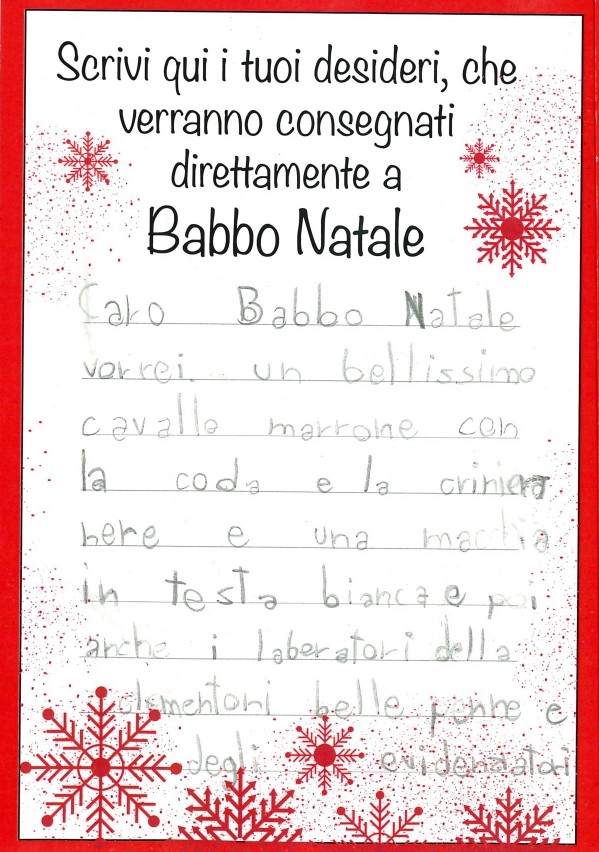 Scrivi qui i tuoi desideri, che
verranno consegnati
direttamente a
Babbo Natale
Caro Babbo Natale
vorrei un bellissimo
cavallo marrone con
la coda e la criniera
nere e una macchia
in testa bianca e poi
anche i laberatori della
clementoni belle penne e
degli evidenziatori